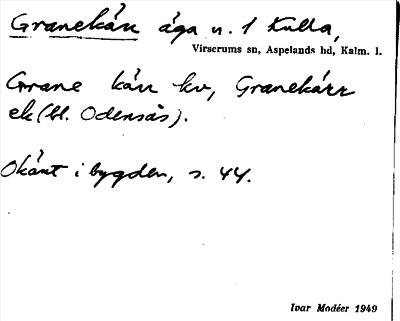 Granekärr äga n. 1 Kulla,
Virserums sn, Aspelands hd, Kalm. l.
Grane kärr kv, Granekärr
ek (bl. Odensås).
Okänt i bygden, s. 44.
Ivar Modéer 1949